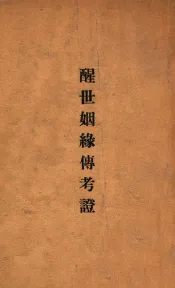 醒世姻緣傳考證